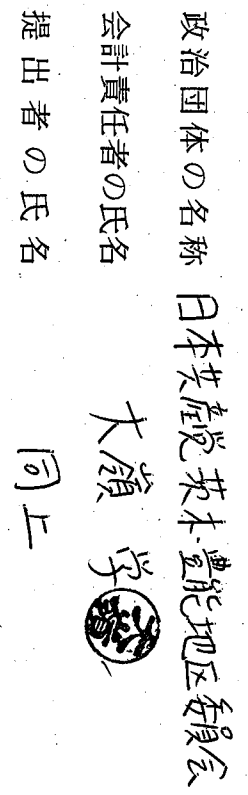 政治団体の名称 日本共産党茨木・豊能地区委員会
会計責任者の氏名 大嶺 学
提出者の氏名 同上